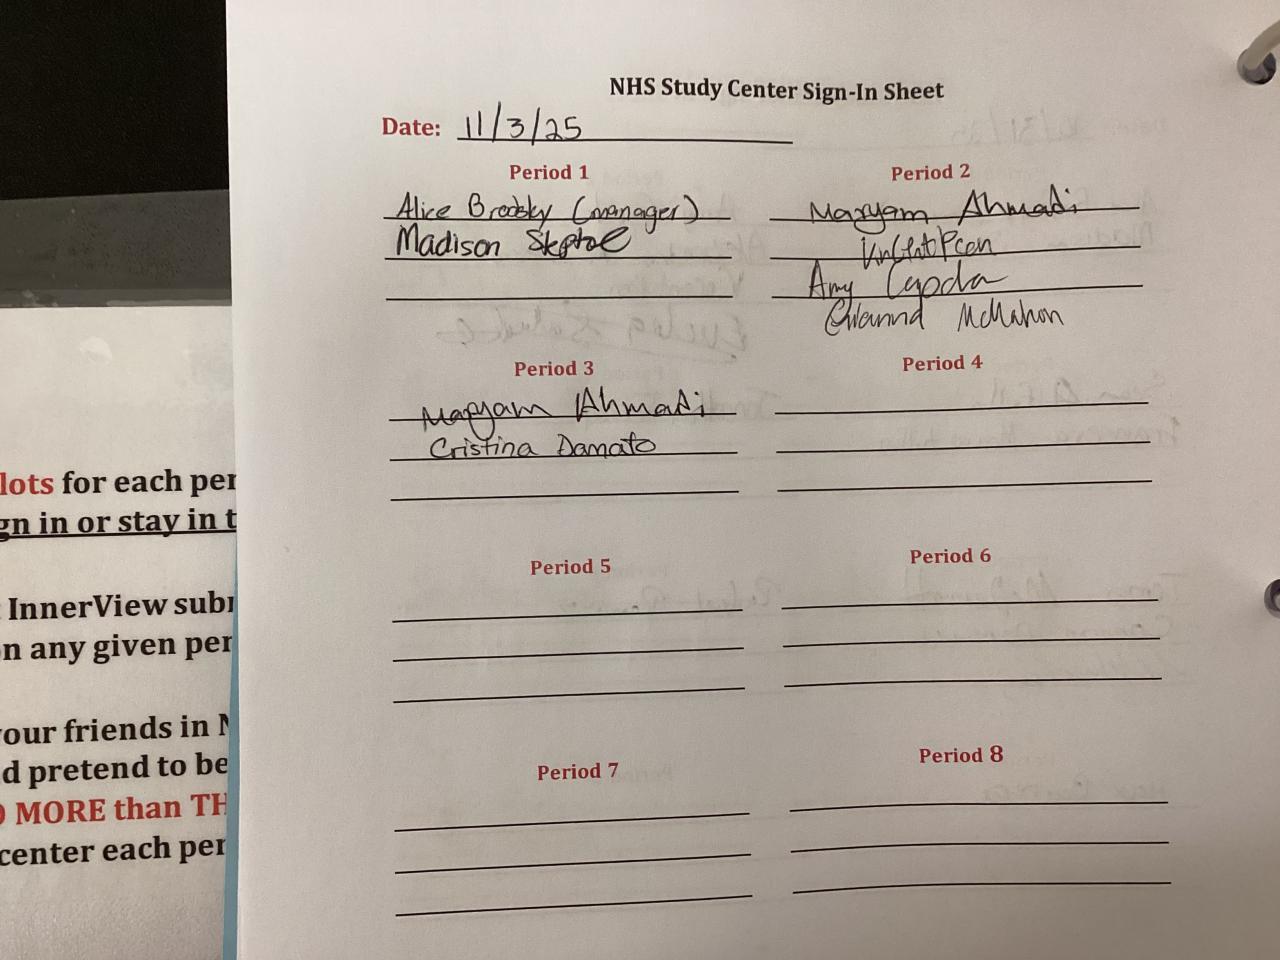 NHS Study Center Sign-In Sheet
Date: 11/3/25
Period 1
Alice Brodsky (manager)
Madison
Period 2
Maryam Ahmadi
Amy
McMahon
Period 3
Maryam Ahmadi
Cristina Damato
Period 4
Period 5
Period 6
Period 7
Period 8
lots for each per
gn in or stay in t
InnerView subm
n any given per
your friends in N
d pretend to be
O MORE than TH
center each per